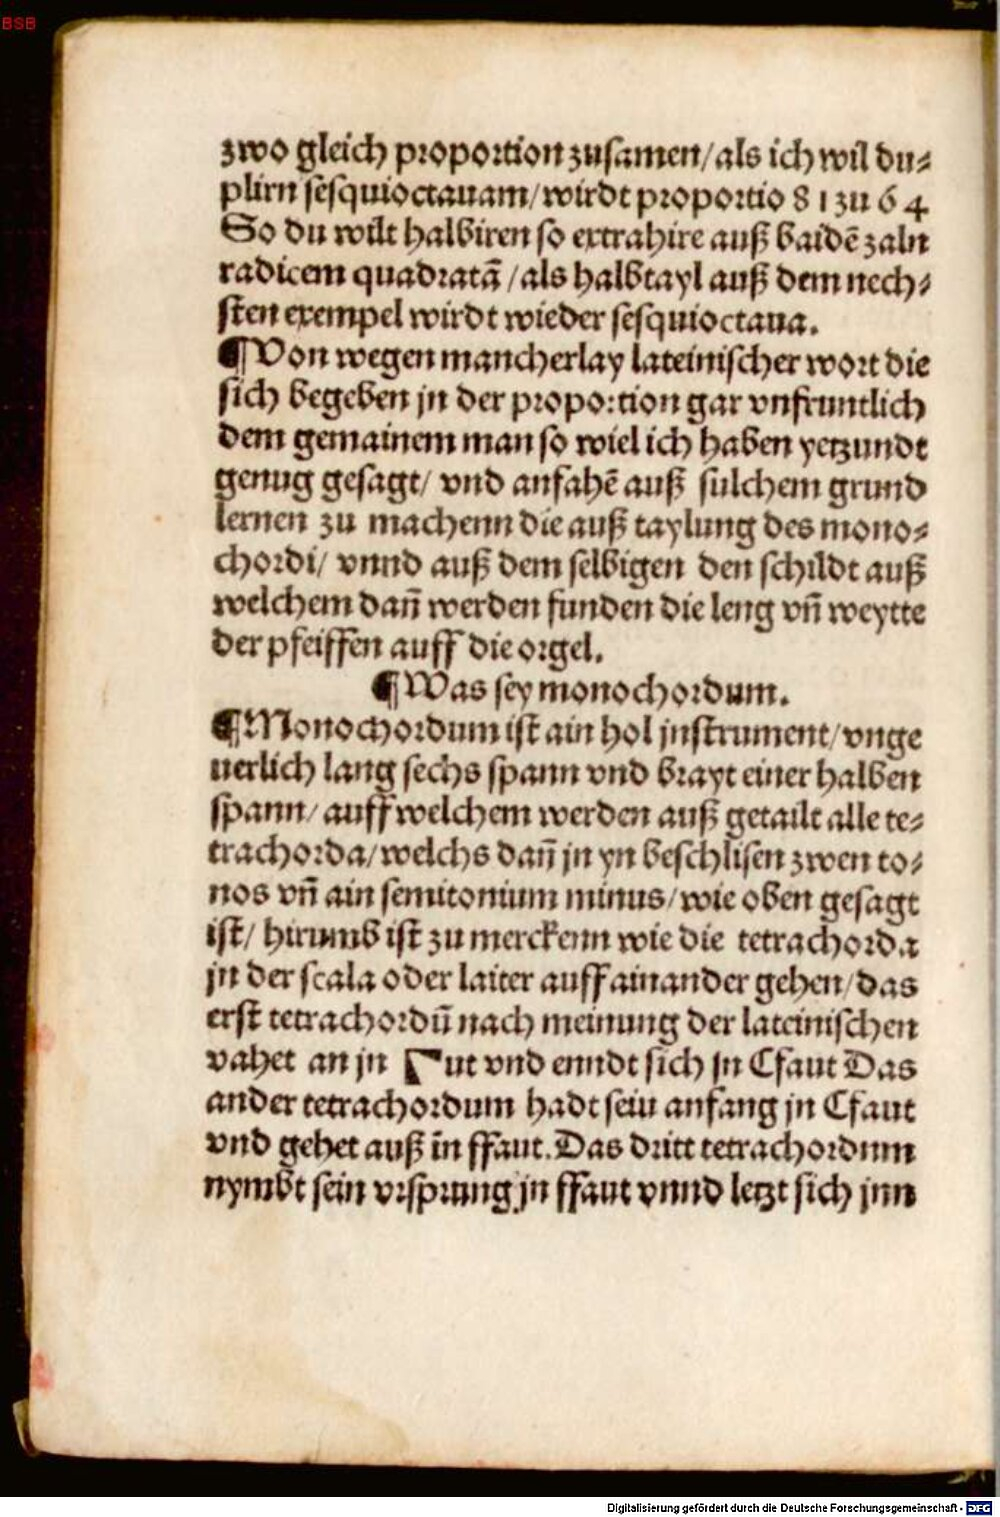 BSB
zwo gleich proportion zusamen/als ich wil du⸗
plirn sesquioctauam/wirdt proportio 81 zu 64
So du wilt halbiren so extrahire auß baidē zaln
radicem quadratā/als halbtayl auß dem nech⸗
sten exempel wirdt wieder sesquioctaua.
¶Von wegen mancherlay lateinischer wort die
sich begeben jn der proportion gar vnfruntlich
dem gemainem man so wiel ich haben yetzundt
genug gesagt/ vnd anfahē auß sulchem grund
lernen zu machenn die auß taylung des mono⸗
chordi/ vnnd auß dem selbigen den schildt auß
welchem dañ werden funden die leng vñ weytte
der pfeiffen auff die orgel.
¶Was sey monochordum.
¶Monochordum ist ain hol jnstrument/vnge
uerlich lang sechs spann vnd brayt einer halben
spann/ auff welchem werden auß getailt alle te⸗
trachorda/welchs dañ jn yn beschlisen zwen to⸗
nos vñ ain semitonium minus/wie oben gesagt
ist/ hirumb ist zu merckenn wie die tetrachorda
jn der scala oder laiter auff ainander gehen/das
erst tetrachordū nach meinung der lateinischen
vahet an jn Γut vnd enndt sich jn Cfaut Das
ander tetrachordum hadt seiu anfang jn Cfaut
vnd gehet auß īn ffaut. Das dritt tetrachordum
nymbt sein vrsprung jn ffaut vnnd letzt sich jnn
Digitalisierung gefördert durch die Deutsche Forschungsgemeinschaft - DFG